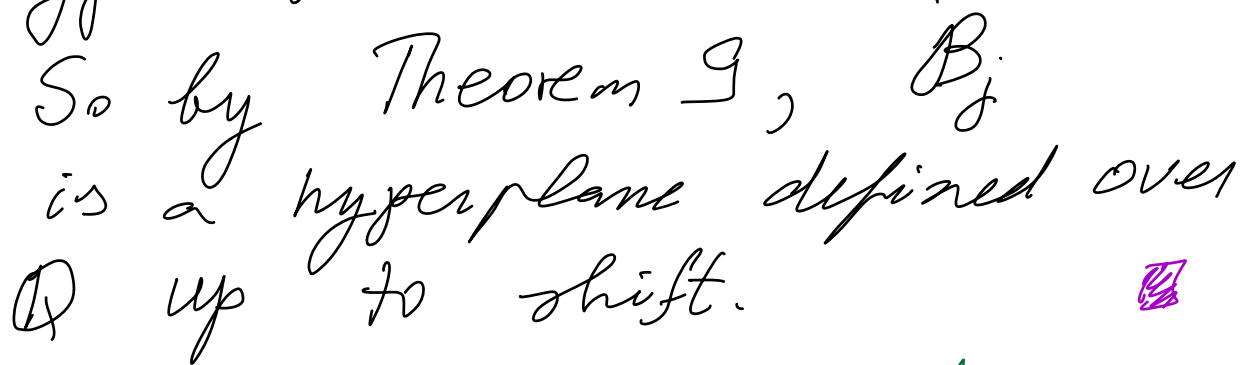 So by Theorem 9, B_j
is a hyperplane defined over
ℚ up to shift.